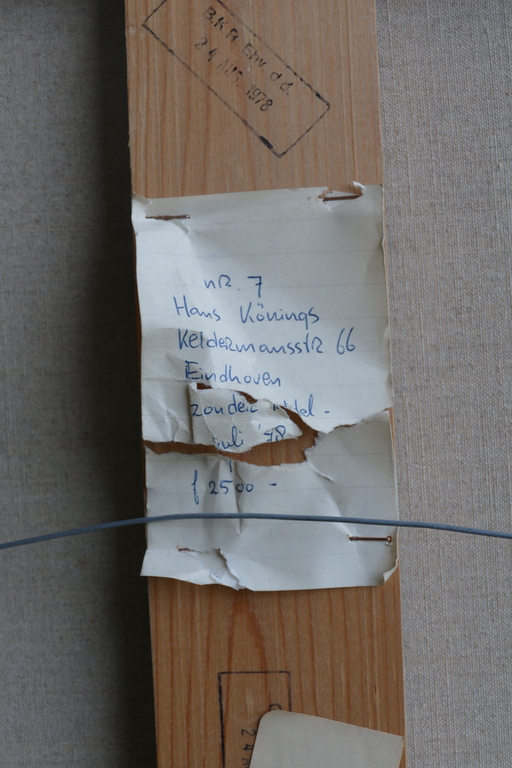 B.K.R. Ehv. d.d.
24 1978
nR. 7
Hans Könings
Keldermansstr 66
Eindhoven
zonder -
juli '78
f 2500 -
24